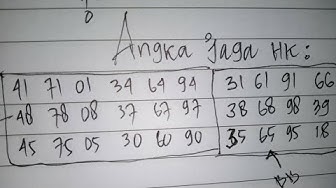 0
Angka Jaga HK:
41 71 01 34 64 94 31 61 91 66
48 78 08 37 67 97 38 68 98 39
45 75 05 30 60 90 35 65 95 18
BB